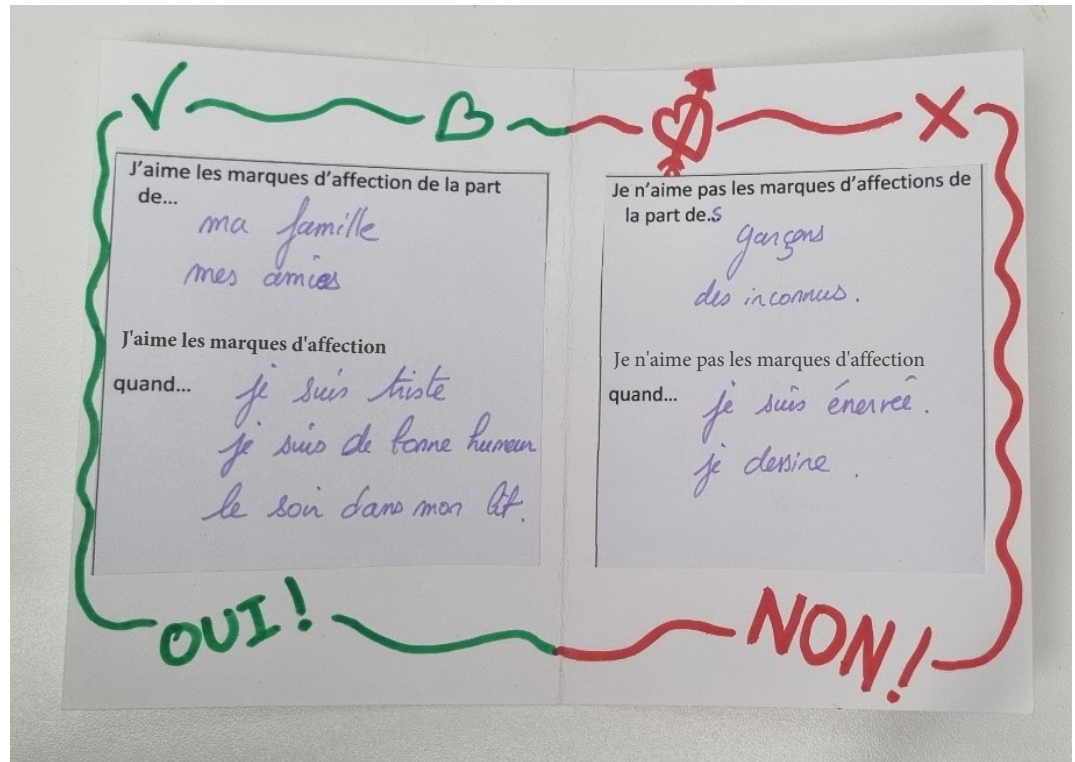 J'aime les marques d'affection de la part
de...
ma famille
mes amies
J'aime les marques d'affection
quand...
je suis triste
je suis de bonne humeur
le soir dans mon lit.
OUI!
Je n'aime pas les marques d'affections de
la part de.s
garçons
des inconnus.
Je n'aime pas les marques d'affection
quand...
je suis énervée.
je dessine.
NON!